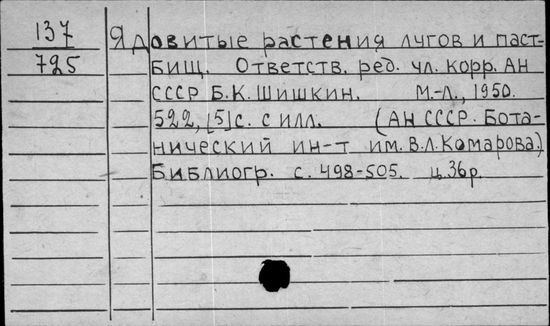 137
725
Ядовитые растения лугов и паст-
бищ. Ответств. ред. чл. корр. АН
СССР Б.К. Шишкин. М.-Л., 1950.
522, [5] с. с илл. (АН СССР. Бота-
нический ин-т им. В.Л. Комарова.)
Библиогр. с. 498-505. ц. 36 р.